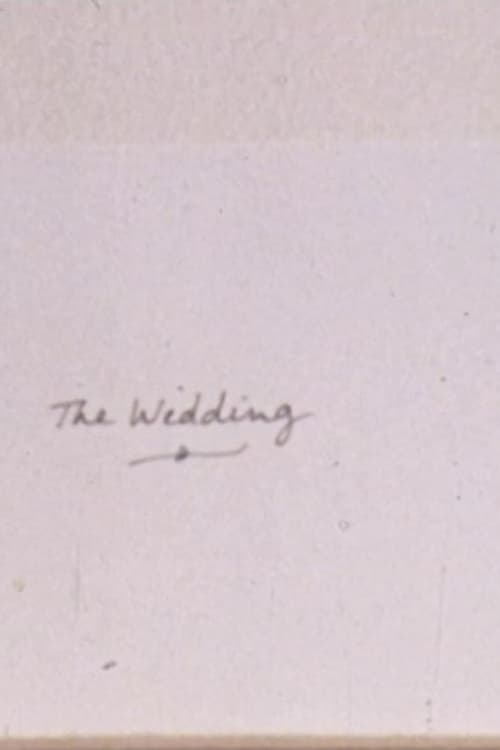 The Wedding